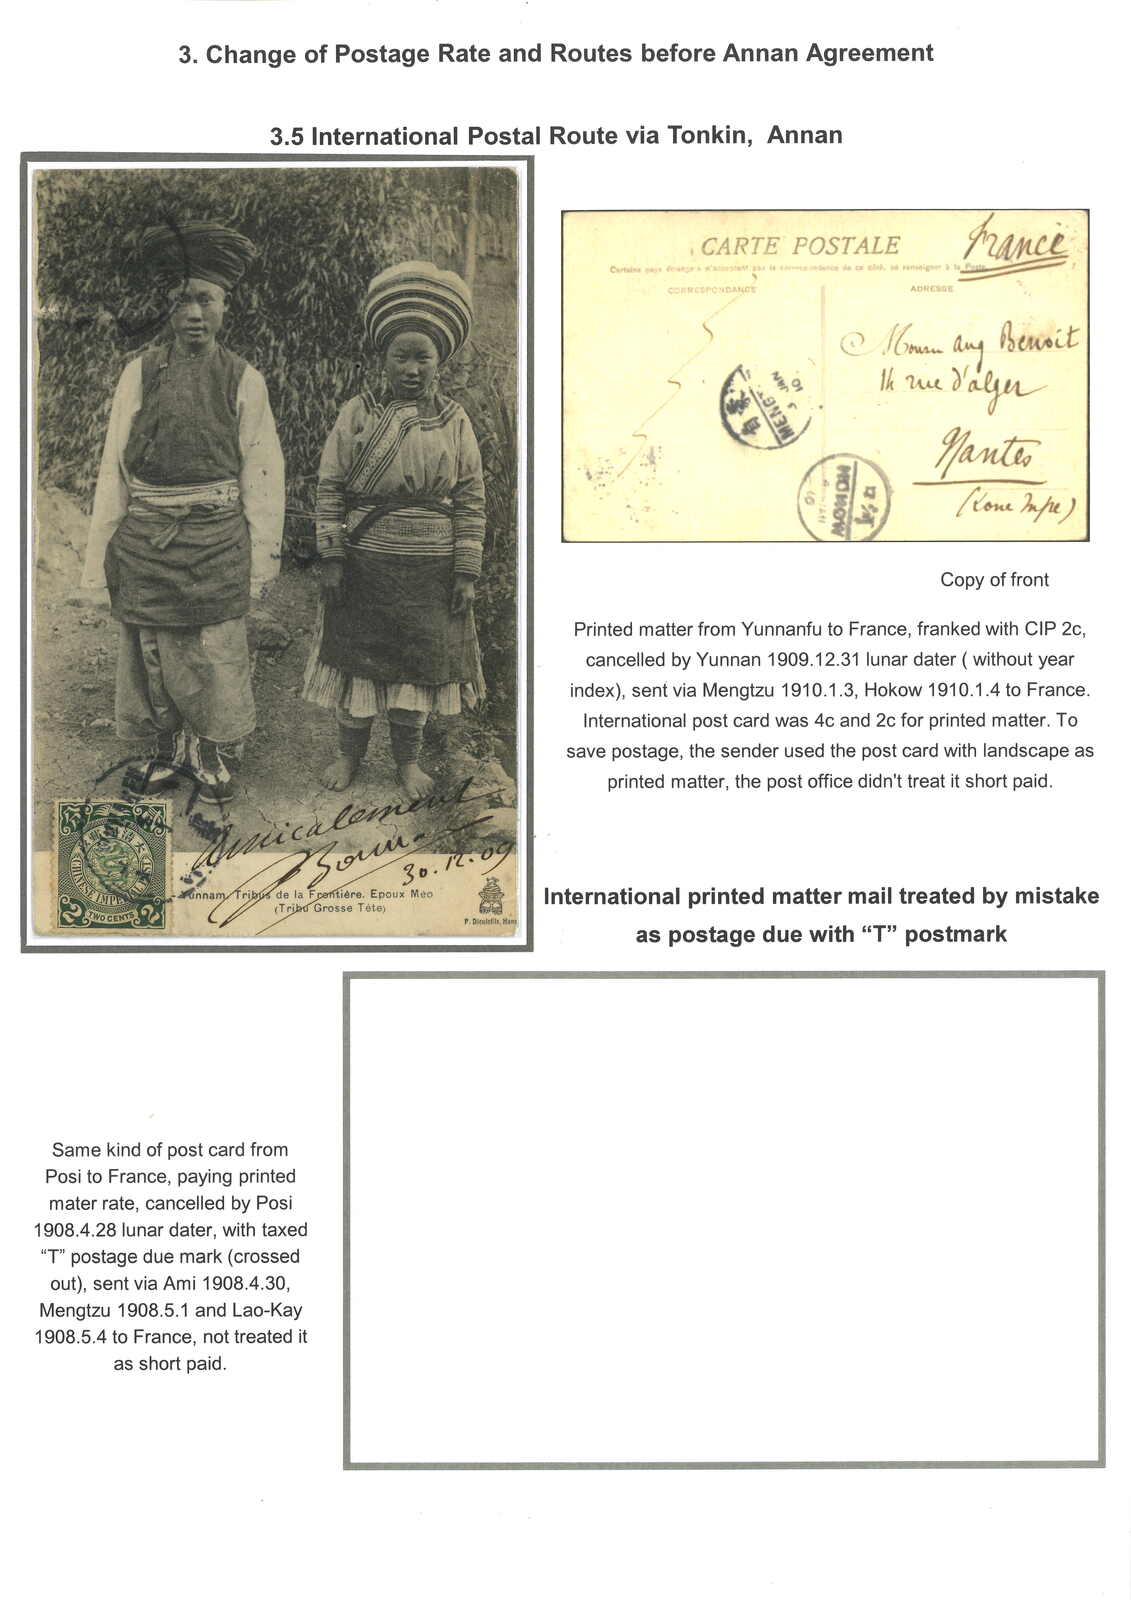 3. Change of Postage Rate and Routes before Annan Agreement
3.5 International Postal Route via Tonkin, Annan
CARTE POSTALE
France
Certains pays étrangers n'acceptant pas la correspondance de ce côté, se renseigner à la Poste
CORRESPONDANCE
ADRESSE
Benoit
14 rue d'alger
Nantes
MENGT
3 JAN 10
HOKOW
Copy of front
Printed matter from Yunnanfu to France, franked with CIP 2c,
cancelled by Yunnan 1909.12.31 lunar dater ( without year
index), sent via Mengtzu 1910.1.3, Hokow 1910.1.4 to France.
International post card was 4c and 2c for printed matter. To
save postage, the sender used the post card with landscape as
printed matter, the post office didn't treat it short paid.
Amicalement
30.12.09
Yunnam. Tribus de la Frontière. Epoux Méo
(Tribu Grosse Tête)
P. Dieulefils, Hanoi
CHINESE IMPERIAL
2 TWO CENTS 2
International printed matter mail treated by mistake
as postage due with “T” postmark
Same kind of post card from
Posi to France, paying printed
mater rate, cancelled by Posi
1908.4.28 lunar dater, with taxed
“T” postage due mark (crossed
out), sent via Ami 1908.4.30,
Mengtzu 1908.5.1 and Lao-Kay
1908.5.4 to France, not treated it
as short paid.